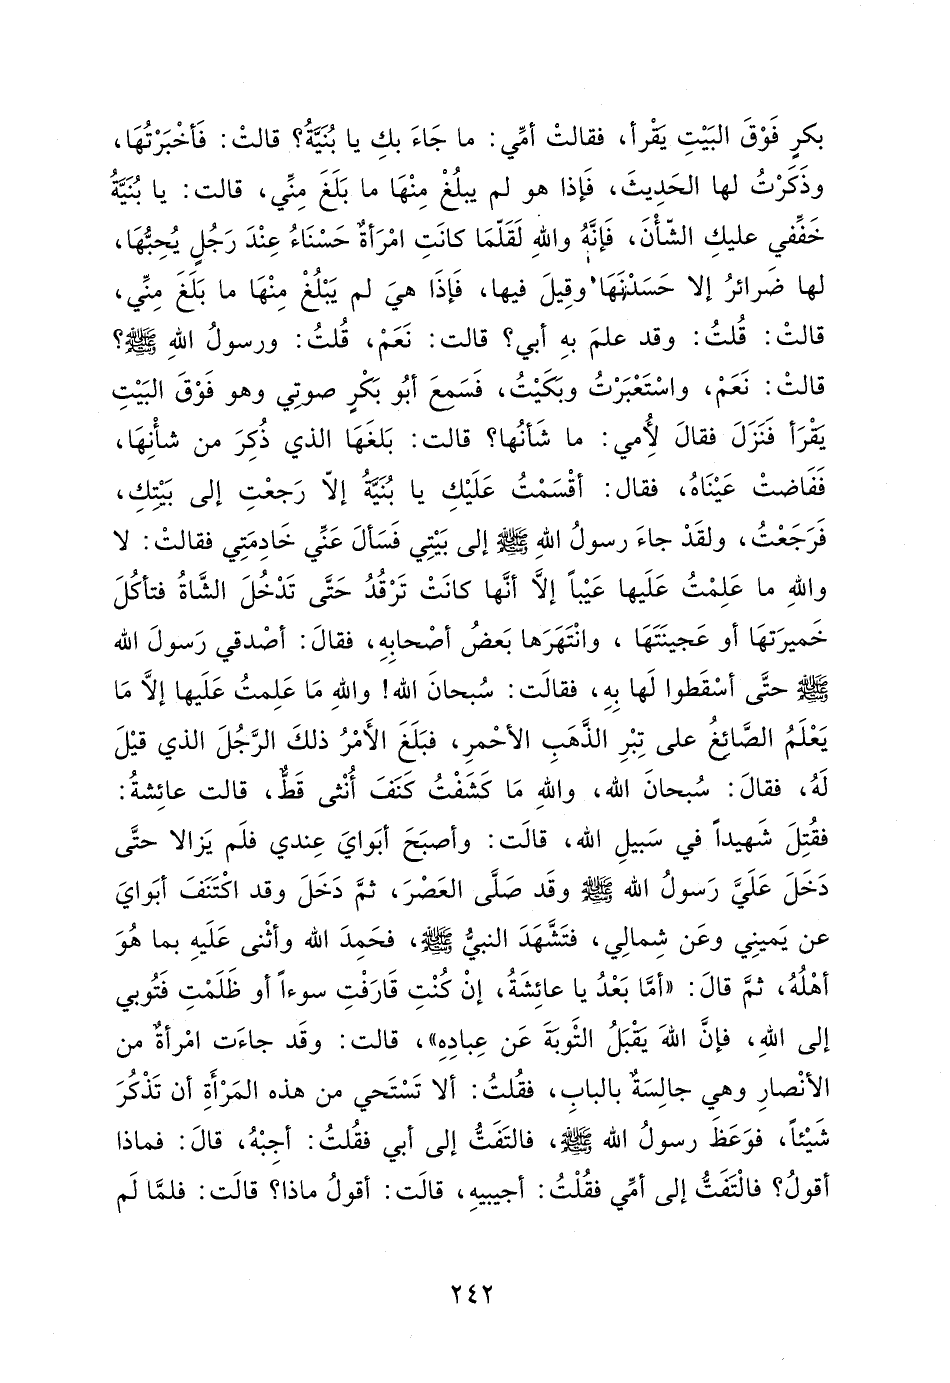 بكرٍ فَوْقَ البَيْتِ يَقْرأ، فقالتْ أمِّي: ما جَاءَ بكِ يا بُنَيَّةُ؟ قالتْ: فَأخْبَرْتُهَا،
وذَكَرْتُ لها الحَديثَ، فَإذا هو لم يبلُغْ مِنْهَا ما بَلَغَ مِنِّي، قالت: يا بُنَيَّةُ
خَفِّفي عليكِ الشّأْنَ، فَإنَّهُ واللهِ لَقَلّمَا كانَتِ امْرَأةٌ حَسْنَاءُ عِنْدَ رَجُلٍ يُحِبُّهَا،
لها ضَرائرُ إلا حَسَدْنَهَا وقِيلَ فيها، فَإذَا هيَ لم يَبْلُغْ مِنْهَا ما بَلَغَ مِنِّي،
قالتْ: قُلتُ: وقد علمَ بهِ أبي؟ قالت: نَعَمْ، قُلتُ: ورسولُ اللهِ ﷺ؟
قالتْ: نَعَمْ، واسْتَعْبَرْتُ وبَكَيْتُ، فَسَمِعَ أبُو بَكْرٍ صوتِي وهو فَوْقَ البَيْتِ
يَقْرَأ فَنَزَلَ فقالَ لأُمي: ما شَأنُها؟ قالت: بَلغَهَا الذي ذُكِرَ من شأْنِهَا،
فَفَاضتْ عَيْنَاهُ، فقال: أقْسَمْتُ عَلَيْكِ يا بُنَيَّةُ إلاّ رَجعْتِ إلى بَيْتِكِ،
فَرَجَعْتُ، ولقَدْ جاءَ رسولُ اللهِ ﷺ إلى بَيْتِي فَسَألَ عَنِّي خَادِمَتِي فقالتْ: لا
واللهِ ما عَلِمْتُ عَلَيها عَيْباً إلاَّ أنَّها كانَتْ تَرْقُدُ حَتَّى تَدْخُلَ الشَّاةُ فتأكُلَ
خَميرَتهَا أو عَجينَتَهَا ، وانْتَهَرَها بَعضُ أصْحابِهِ، فقالَ: أصْدقي رَسولَ الله
ﷺ حتَّى أسْقَطوا لَها بِهِ، فقالَت: سُبحانَ الله! واللهِ مَا عَلِمتُ عَلَيها إلاَّ مَا
يَعْلَمُ الصَّائِغُ على تِبْرِ الذَّهَبِ الأحْمرِ، فبَلَغَ الأَمْرُ ذلكَ الرَّجُلَ الذي قيْلَ
لَهُ، فقالَ: سُبحانَ الله، واللهِ مَا كَشَفْتُ كَنَفَ أُنْثى قَطٌّ، قالت عائِشةُ:
فقُتِلَ شَهيداً في سَبيلِ الله، قالَت: وأصبَحَ أبْوايَ عِندي فلَم يَزالا حتَّى
دَخَلَ عَلَيَّ رَسولُ الله ﷺ وقَد صَلَّى العَصْرَ، ثمَّ دَخَلَ وقد اكْتَنَفَ أبَوايَ
عن يَميني وعَن شِمالي، فتَشَّهَدَ النبيُّ ﷺ، فحَمِدَ الله وأثْنى عَلَيهِ بما هُوَ
أهْلُهُ، ثمَّ قالَ: «أمَّا بَعْدُ يا عائِشَةُ، إنْ كُنْتِ قارَفْتِ سوءاً أو ظَلَمْتِ فَتُوبي
إلى اللهِ، فإنَّ اللهَ يَقْبَلُ التّوبَةَ عَن عِبادِهِ»، قالت: وقَد جاءَت امْرأةٌ من
الأنْصارِ وهي جالِسَةٌ بالبابِ، فقُلتُ: ألا تَسْتَحي من هذه المَرْأةِ أن تَذْكُرَ
شَيْئاً، فوَعَظَ رسولُ الله ﷺ، فالتَفَتُّ إلى أبي فقُلتُ: أجِبْهُ، قالَ: فماذا
أقولُ؟ فالْتَفَتُّ إلى أمِّي فقُلْتُ: أجيبيهِ، قالَت: أقولُ ماذا؟ قالَت: فلمَّا لَم
٢٤٢